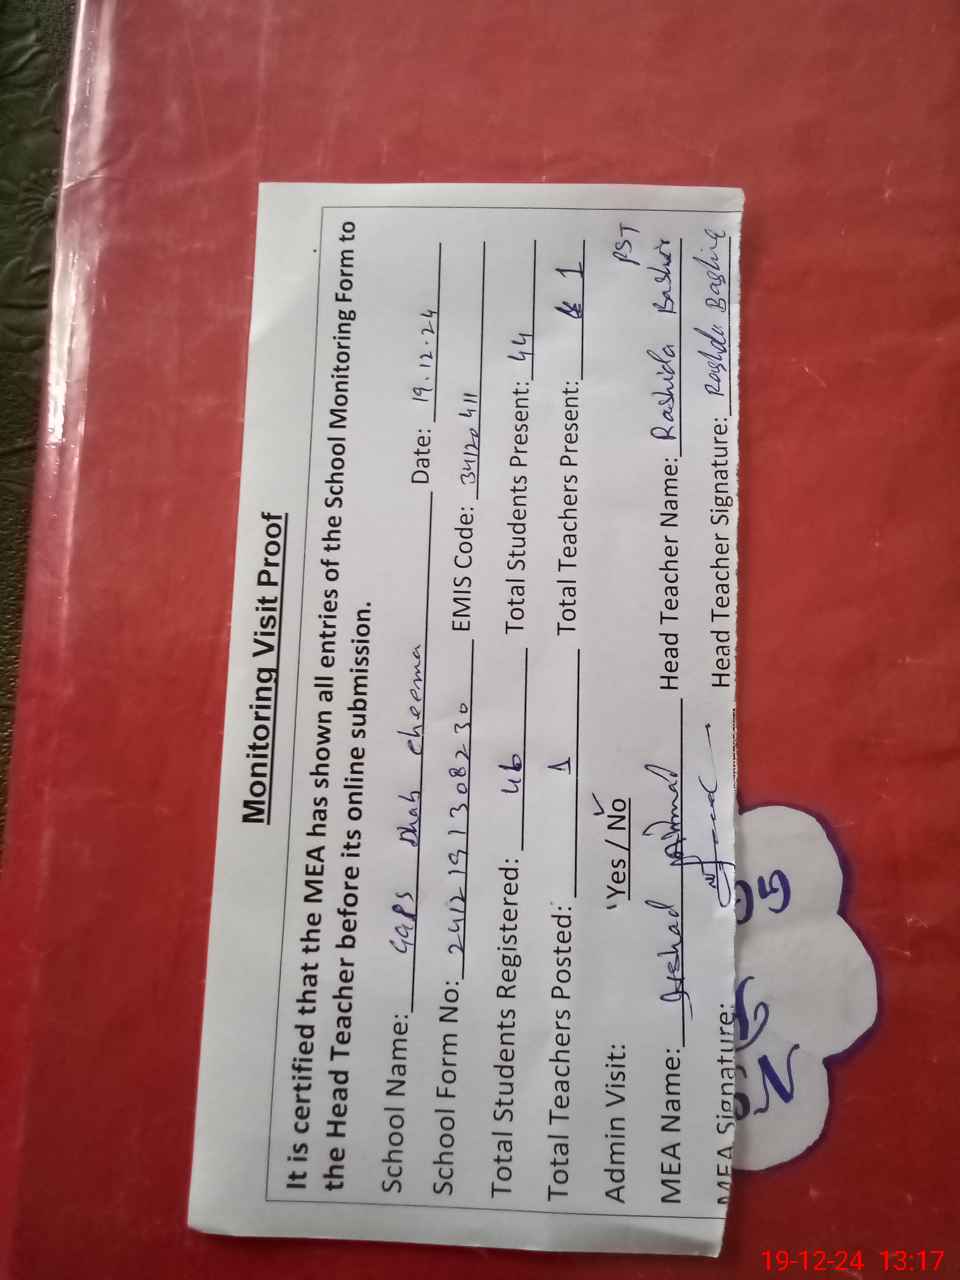 Monitoring Visit Proof
It is certified that the MEA has shown all entries of the School Monitoring Form to
the Head Teacher before its online submission.
School Name: GGPS Dhab Cheema Date: 19.12.24
School Form No: 2412191308230 EMIS Code: 34120411
Total Students Registered: 46 Total Students Present: 44
Total Teachers Posted: 1 Total Teachers Present: 1
Admin Visit: Yes / No ✓ PST
MEA Name: Arshad Ahmad Head Teacher Name: Rashida Bashir
MEA Signature: Head Teacher Signature: Rashda Bashir
19-12-24 13:17